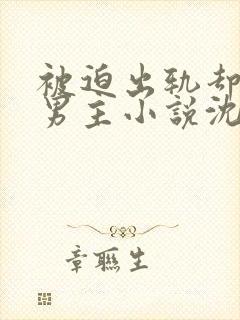 被迫出轨却
男主小說沈
章聯生